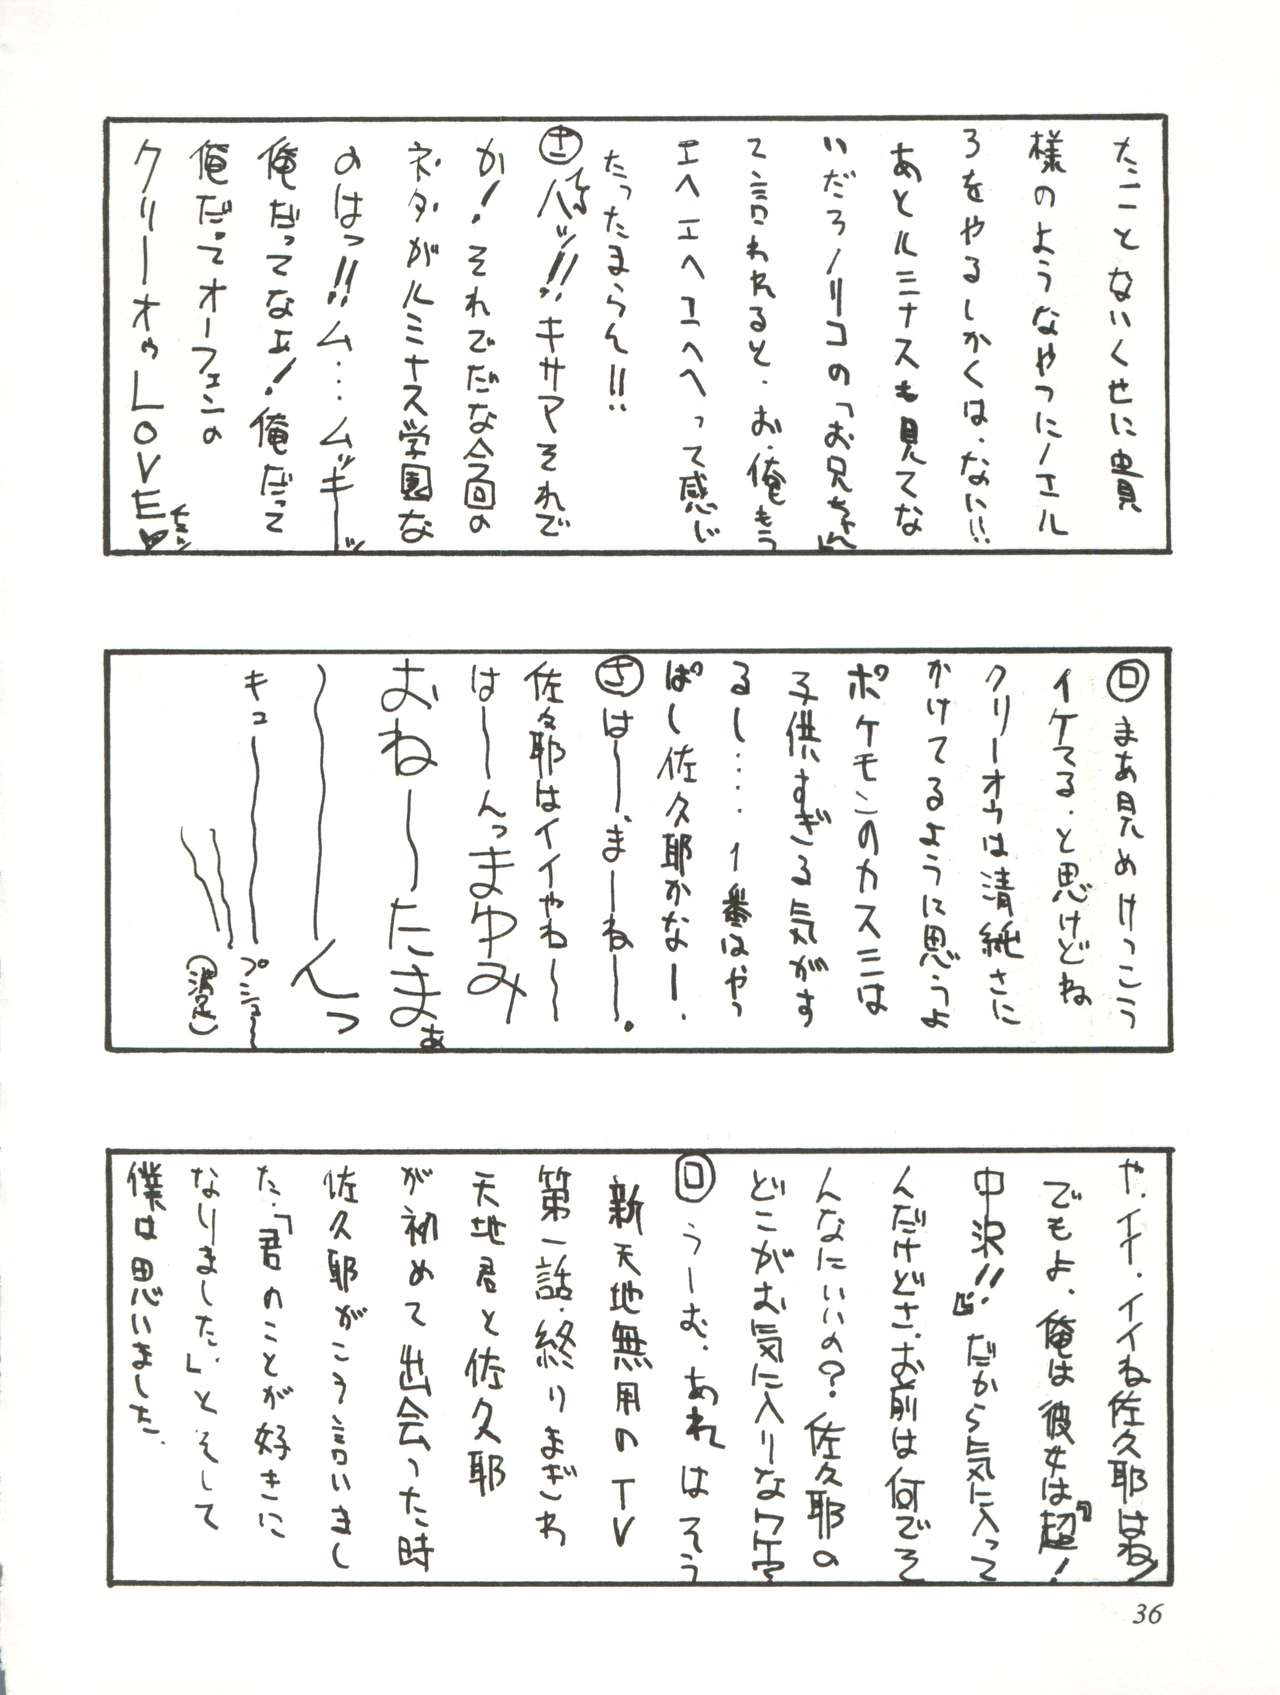 たことないくせに貴
様のようなやつにノエル
ろをやるしかくは、ない!!
あとルミナスも見てな
いだろノリコの「お兄ちゃん」
て言われると、お、俺もう
エヘエヘエヘヘって感じ
たったまらん!!
ハッ!!キサマそれで
か!それでだな今回の
ネタがルミナス学園な
のはっ!!ム…ムッキーッ
俺だってなェ!俺だって
俺だってオーフェンの
クリーオゥLOVE♥
ロ まあ見めけっこう
イケてる、と思けどね
クリーオウは清純さに
かけてるように思うよ
ポケモンのカスミは
子供すぎる気がす
るし‥‥1番はやっ
ぱし佐久耶かなー、
さ は〜、まーねー。
佐久耶はイイやね〜
は〜んっまゆみ
おね〜たまぁ
〜んっ
キュー
プシュー〜
(満足)
や、イイ、イイね佐久耶はね!
でもよ、俺は彼女は『超!
中沢!!』だから気に入って
んだけどさ、お前は何でそ
んなにいいの?佐久耶の
どこがお気に入りなワケ?
ロ うーむ、あれはそう
新天地無用のTV
第一話、終りまぎわ
天地君と佐久耶
が初めて出会った時
佐久耶がこう言いまし
た、「君のことが好きに
なりました、」とそして
僕は思いました、
36